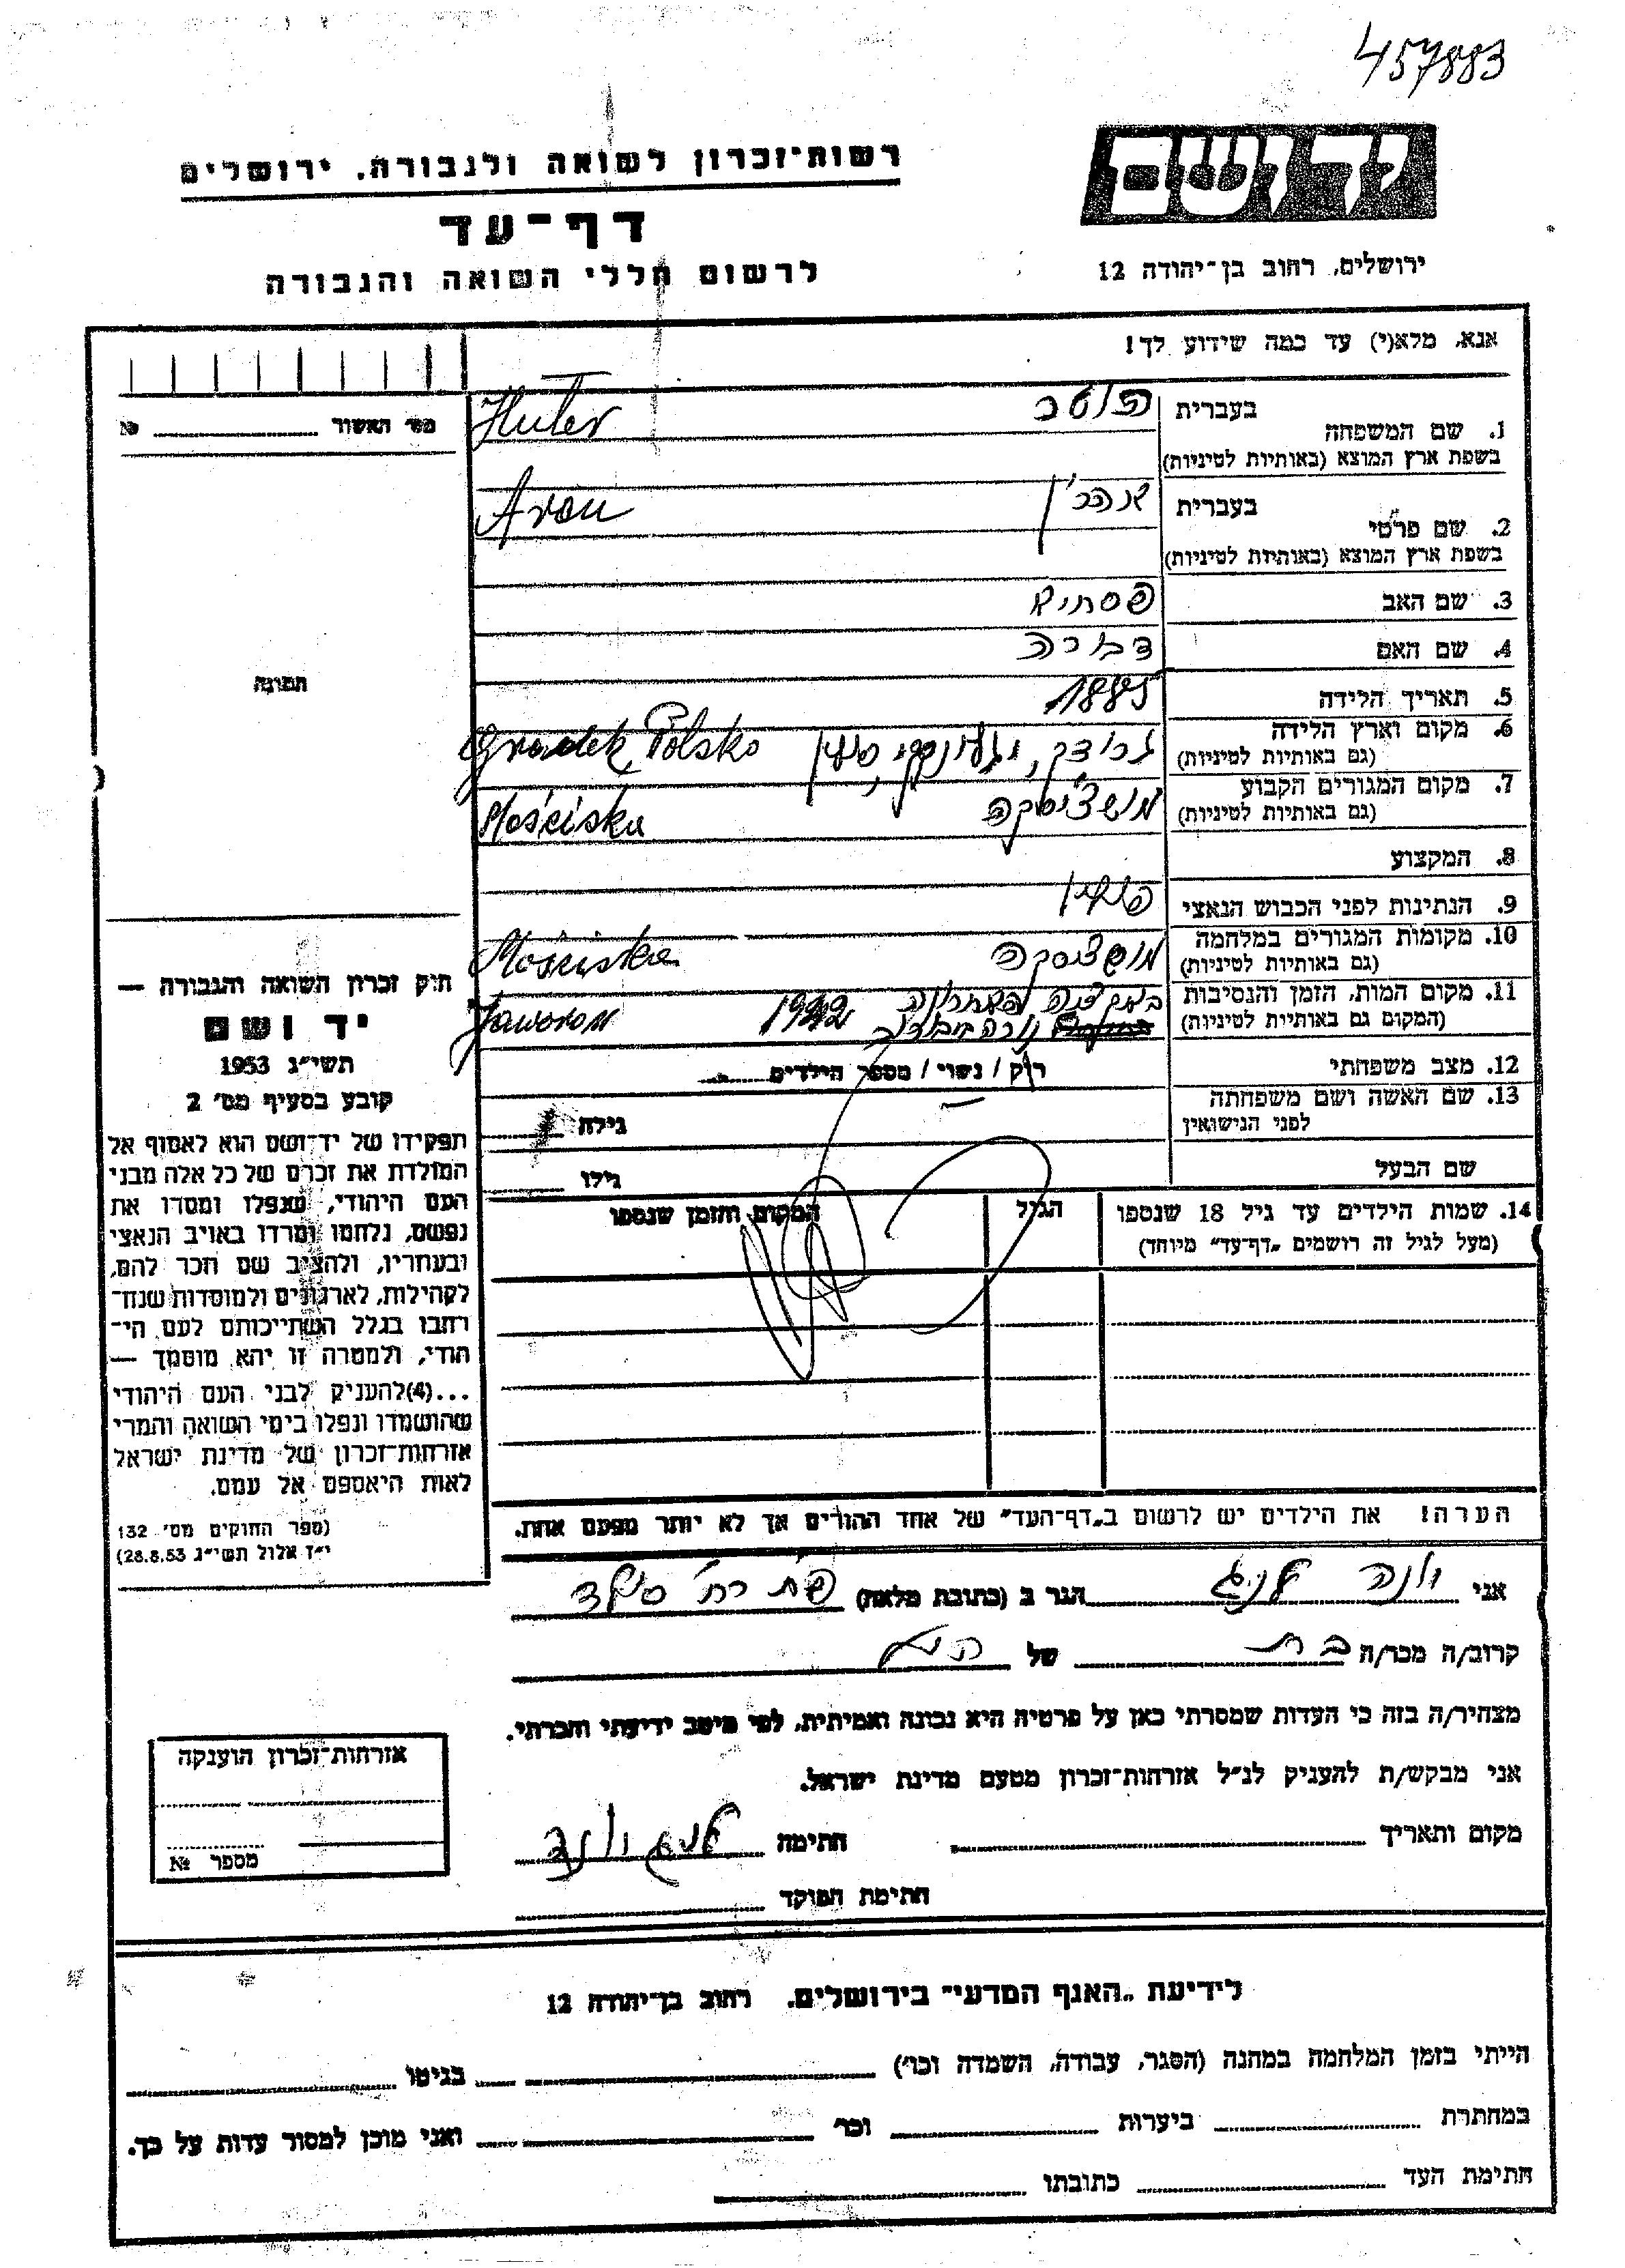 457883
יד ושם
ירושלים, רחוב בן-יהודה 12
רשות-זכרון לשואה ולגבורה, ירושלים
דף-עד
לרשום חללי השואה והגבורה
אנא, מלא(י) עד כמה שידוע לך!
מס' האשור №
תמונה
1. שם המשפחה
בעברית הוטר
בשפת ארץ המוצא (באותיות לטיניות) Huter
2. שם פרטי
בעברית
בשפת ארץ המוצא (באותיות לטיניות) Aron
3. שם האב
4. שם האם דבורה
5. תאריך הלידה 1885
6. מקום וארץ הלידה
(גם באותיות לטיניות) Grodek, Polsko
7. מקום המגורים הקבוע מושציסקה
(גם באותיות לטיניות) Mościska
8. המקצוע
9. הנתינות לפני הכבוש הנאצי פולין
10. מקומות המגורים במלחמה מושציסקה
(גם באותיות לטיניות) Mościska
11. מקום המות, הזמן והנסיבות
(המקום גם באותיות לטיניות) 1942 Jaworow
12. מצב משפחתי רוק / נשוי / מספר הילדים
13. שם האשה ושם משפחתה
לפני הנישואין גילה
שם הבעל גילו
14. שמות הילדים עד גיל 18 שנספו הגיל המקום והזמן שנספו
(מעל לגיל זה רושמים „דף-עד" מיוחד)
הערה! את הילדים יש לרשום ב„דף-העד" של אחד ההורים אך לא יותר מפעם אחת.
חוק זכרון השואה והגבורה —
יד ושם
תשי"ג 1953
קובע בסעיף מס' 2
תפקידו של יד-ושם הוא לאסוף אל
המולדת את זכרם של כל אלה מבני
העם היהודי, שנפלו ומסרו את
נפשם, נלחמו ומרדו באויב הנאצי
ובעוזריו, ולהציב שם וזכר להם,
לקהילות, לארגונים ולמוסדות שנח-
רבו בגלל השתייכותם לעם הי-
הודי, ולמטרה זו יהא מוסמך —
...(4)להעניק לבני העם היהודי
שהושמדו ונפלו בימי השואה והמרי
אזרחות-זכרון של מדינת ישראל
לאות היאספם אל עמם.
(ספר החוקים מס' 132
י"ז אלול תשי"ג 28.8.53)
אני הגר ב (כתובת מלאה)
קרוב/ה מכר/ה בת של
מצהיר/ה בזה כי העדות שמסרתי כאן על פרטיה היא נכונה ואמיתית, לפי מיטב ידיעתי והכרתי.
אני מבקש/ת להעניק לנ"ל אזרחות-זכרון מטעם מדינת ישראל.
מקום ותאריך חתימה
חתימת הפוקד
אזרחות-זכרון הוענקה
מספר №
לידיעת „האגף המדעי" בירושלים, רחוב בן-יהודה 12
הייתי בזמן המלחמה במחנה (הסגר, עבודה, השמדה וכו') בגיטו
במחתרת ביערות וכו' ואני מוכן למסור עדות על כך.
חתימת העד כתובתו